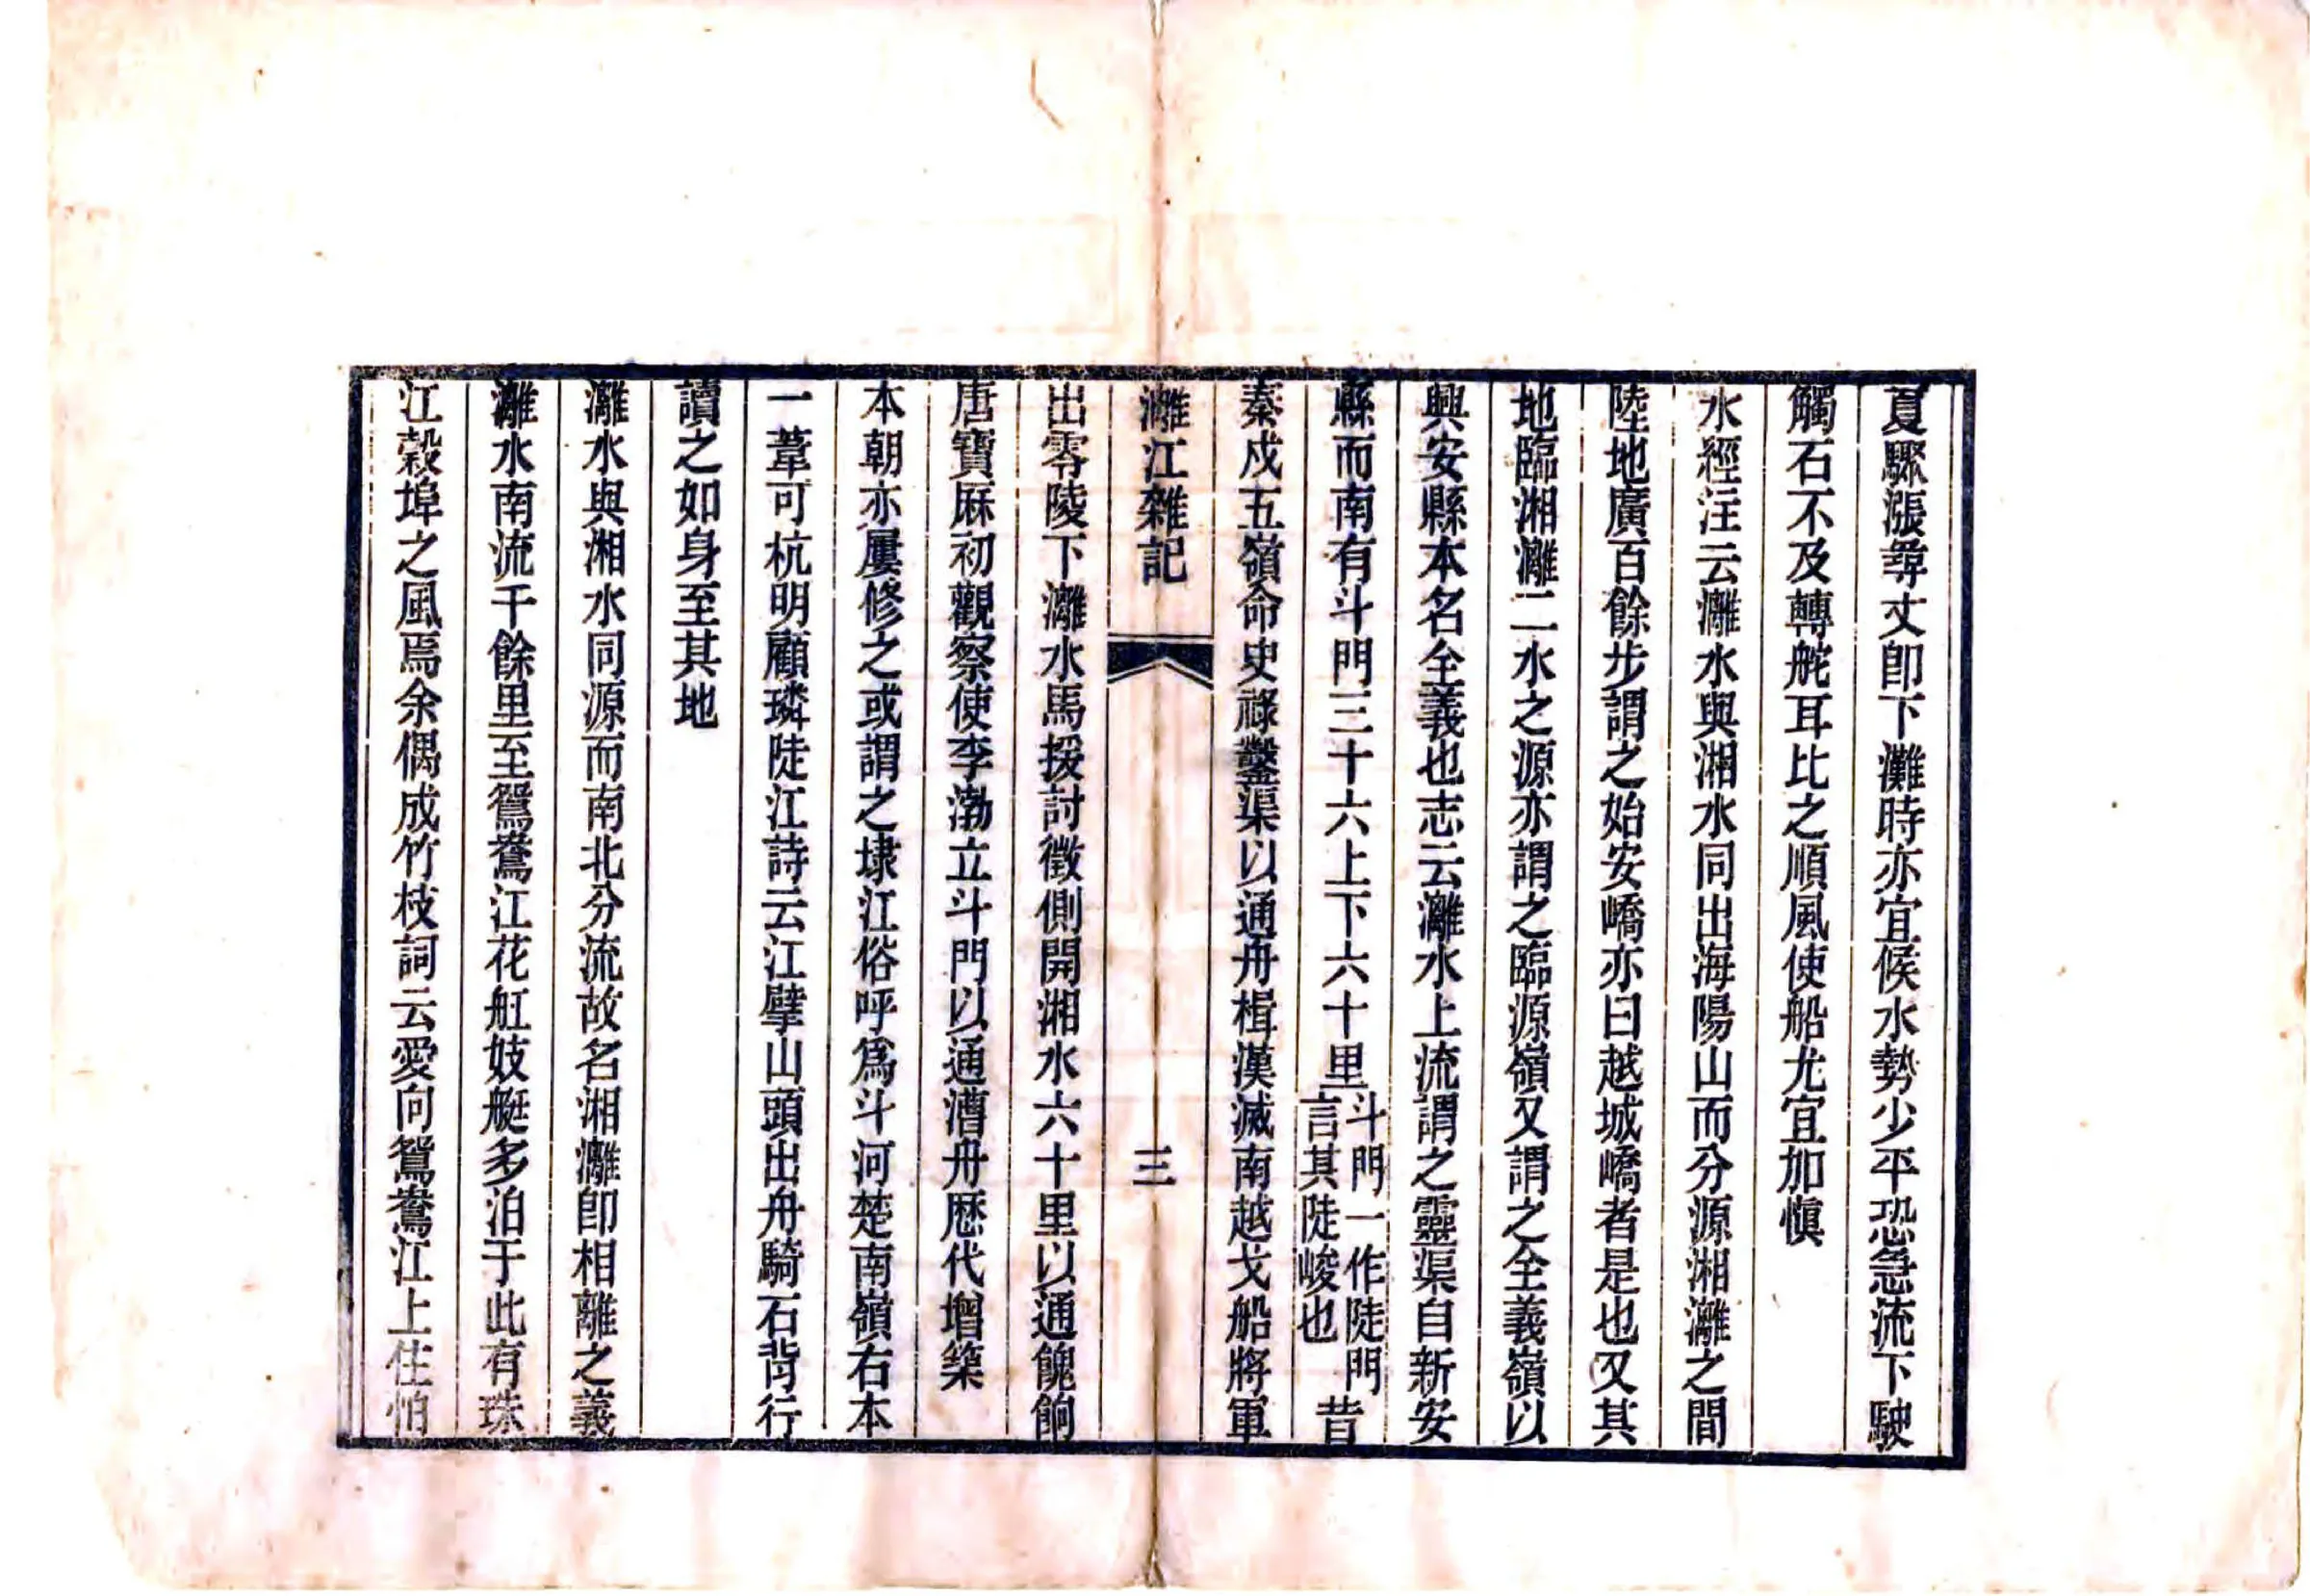 夏驟漲尋丈卽下灘時亦宜候水勢少平恐急流下駛
觸石不及轉舵耳比之順風使船尤宜加愼
水經注云灕水與湘水同出海陽山而分源湘灕之間
陸地廣百餘步謂之始安嶠亦曰越城嶠者是也又其
地臨湘灕二水之源亦謂之臨源嶺又謂之全義嶺以
興安縣本名全義也志云灕水上流謂之靈渠自新安
縣而南有斗門三十六上下六十里斗門一作陡門言其陡峻也昔
秦戍五嶺命史祿鑿渠以通舟楫漢滅南越戈船將軍
灕江雜記 三
出零陵下灕水馬援討徵側開湘水六十里以通餽餉
唐寶厤初觀察使李渤立斗門以通漕舟歷代增築
本朝亦屢修之或謂之埭江俗呼爲斗河楚南嶺右本
一葦可杭明顧璘陡江詩云江擘山頭出舟騎石背行
讀之如身至其地
灕水與湘水同源而南北分流故名湘灕卽相離之義
灕水南流千餘里至鴛鴦江花舡妓艇多泊于此有珠
江榖埠之風焉余偶成竹枝詞云愛向鴛鴦江上住怕